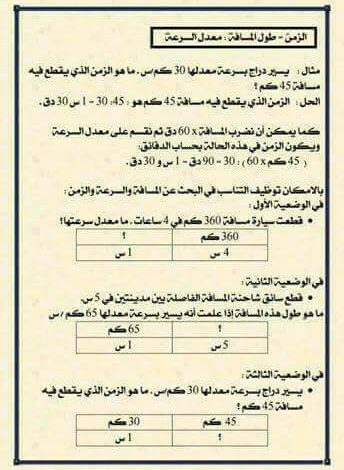 الزمن = طول المسافة : معدل السرعة
مثال : يسير دراج بسرعة معدلها 30 كم/س . ما هو الزمن الذي يقطع فيه
مسافة 45 كم ؟
الحل : الزمن الذي يقطع فيه مسافة 45 كم هو : 45 : 30 = 1 س 30 دق .
كما يمكن أن نضرب المسافة x 60 دق ثم نقسم على معدل السرعة
ويكون الزمن في هذه الحالة بحساب الدقائق:
( 45 كم x 60 ) : 30 = 90 دق = 1 س و 30 دق .
بالامكان توظيف التناسب في البحث عن المسافة والسرعة والزمن :
في الوضعية الأولى :
• قطعت سيارة مسافة 360 كم في 4 ساعات . ما معدل سرعتها ؟
360 كم ؟
4 س 1 س
في الوضعية الثانية :
• قطع سائق شاحنة المسافة الفاصلة بين مدينتين في 5 س .
ما هو طول هذه المسافة إذا علمت أنه يسير بسرعة معدلها 65 كم / س
؟ 65 كم
5 س 1 س
في الوضعية الثالثة :
• يسير دراج بسرعة معدلها 30 كم/س . ما هو الزمن الذي يقطع فيه
مسافة 45 كم ؟
45 كم 30 كم
؟ 1 س